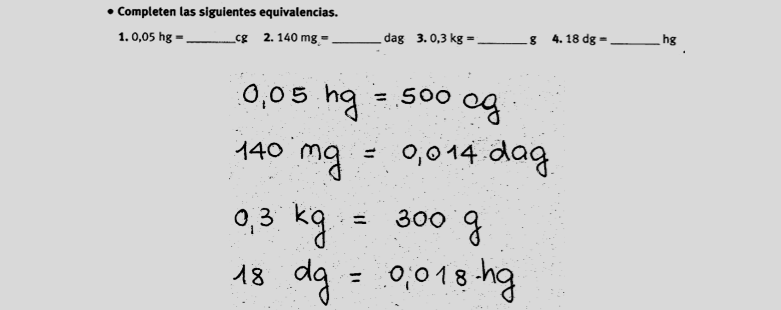 • Completen las siguientes equivalencias.
1. 0,05 hg = ______cg 2. 140 mg = ______ dag 3. 0,3 kg = ______ g 4. 18 dg = ______ hg
0,05 hg = 500 cg
140 mg = 0,014 dag
0,3 kg = 300 g
18 dg = 0,018 hg